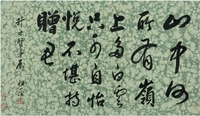 山中何
所有嶺
上多白雲
只可自怡
悅不堪持
贈君